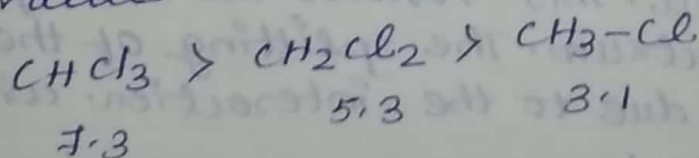 CHCl3 > CH2Cl2 > CH3-Cl
7.3 5.3 3.1